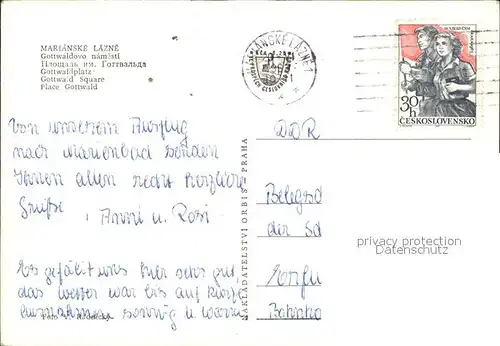 MARIÁNSKÉ LÁZNĚ
Gottwaldovo náměstí
Площадь им. Готтвальда
Gottwaldplatz
Gottwald Square
Place Gottwald
MARIÁNSKÉ LÁZNĚ 1
30 h
ČESKOSLOVENSKO
Von unserem Ausflug
nach Marienbad senden
Ihnen allen recht herzliche
Grüße
Anni u. Rosi
Es gefällt uns hier sehr gut,
das Wetter war bis auf kurze
Ausnahmen sonnig u. warm
Foto
NAKLADATELSTVÍ ORBIS PRAHA
DDR
der Sd
Erfu
privacy protection
Datenschutz